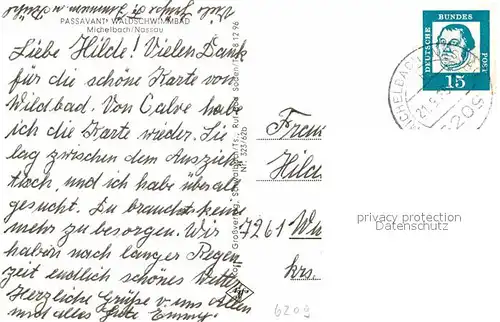 PASSAVANT WALDSCHWIMMBAD
Michelbach/Nassau
Liebe Hilde! Vielen Dank
für die schöne Karte von
Wildbad. Von Calve habe
ich die Karte wieder. Sie
lag zwischen dem Auszieh
tisch, und ich habe überall
gesucht. Du brauchst keine
mehr zu besorgen. Wir
haben nach langer Regen
zeit endlich schönes Wetter
Herzliche Grüße v. uns Allen
und alles Gute Emmy.
Nr. 323/62b
DEUTSCHE BUNDES POST
15
MICHELBACH
6209
Frau
Hild
7261 Wü
krs.
privacy protection
Datenschutz
6209